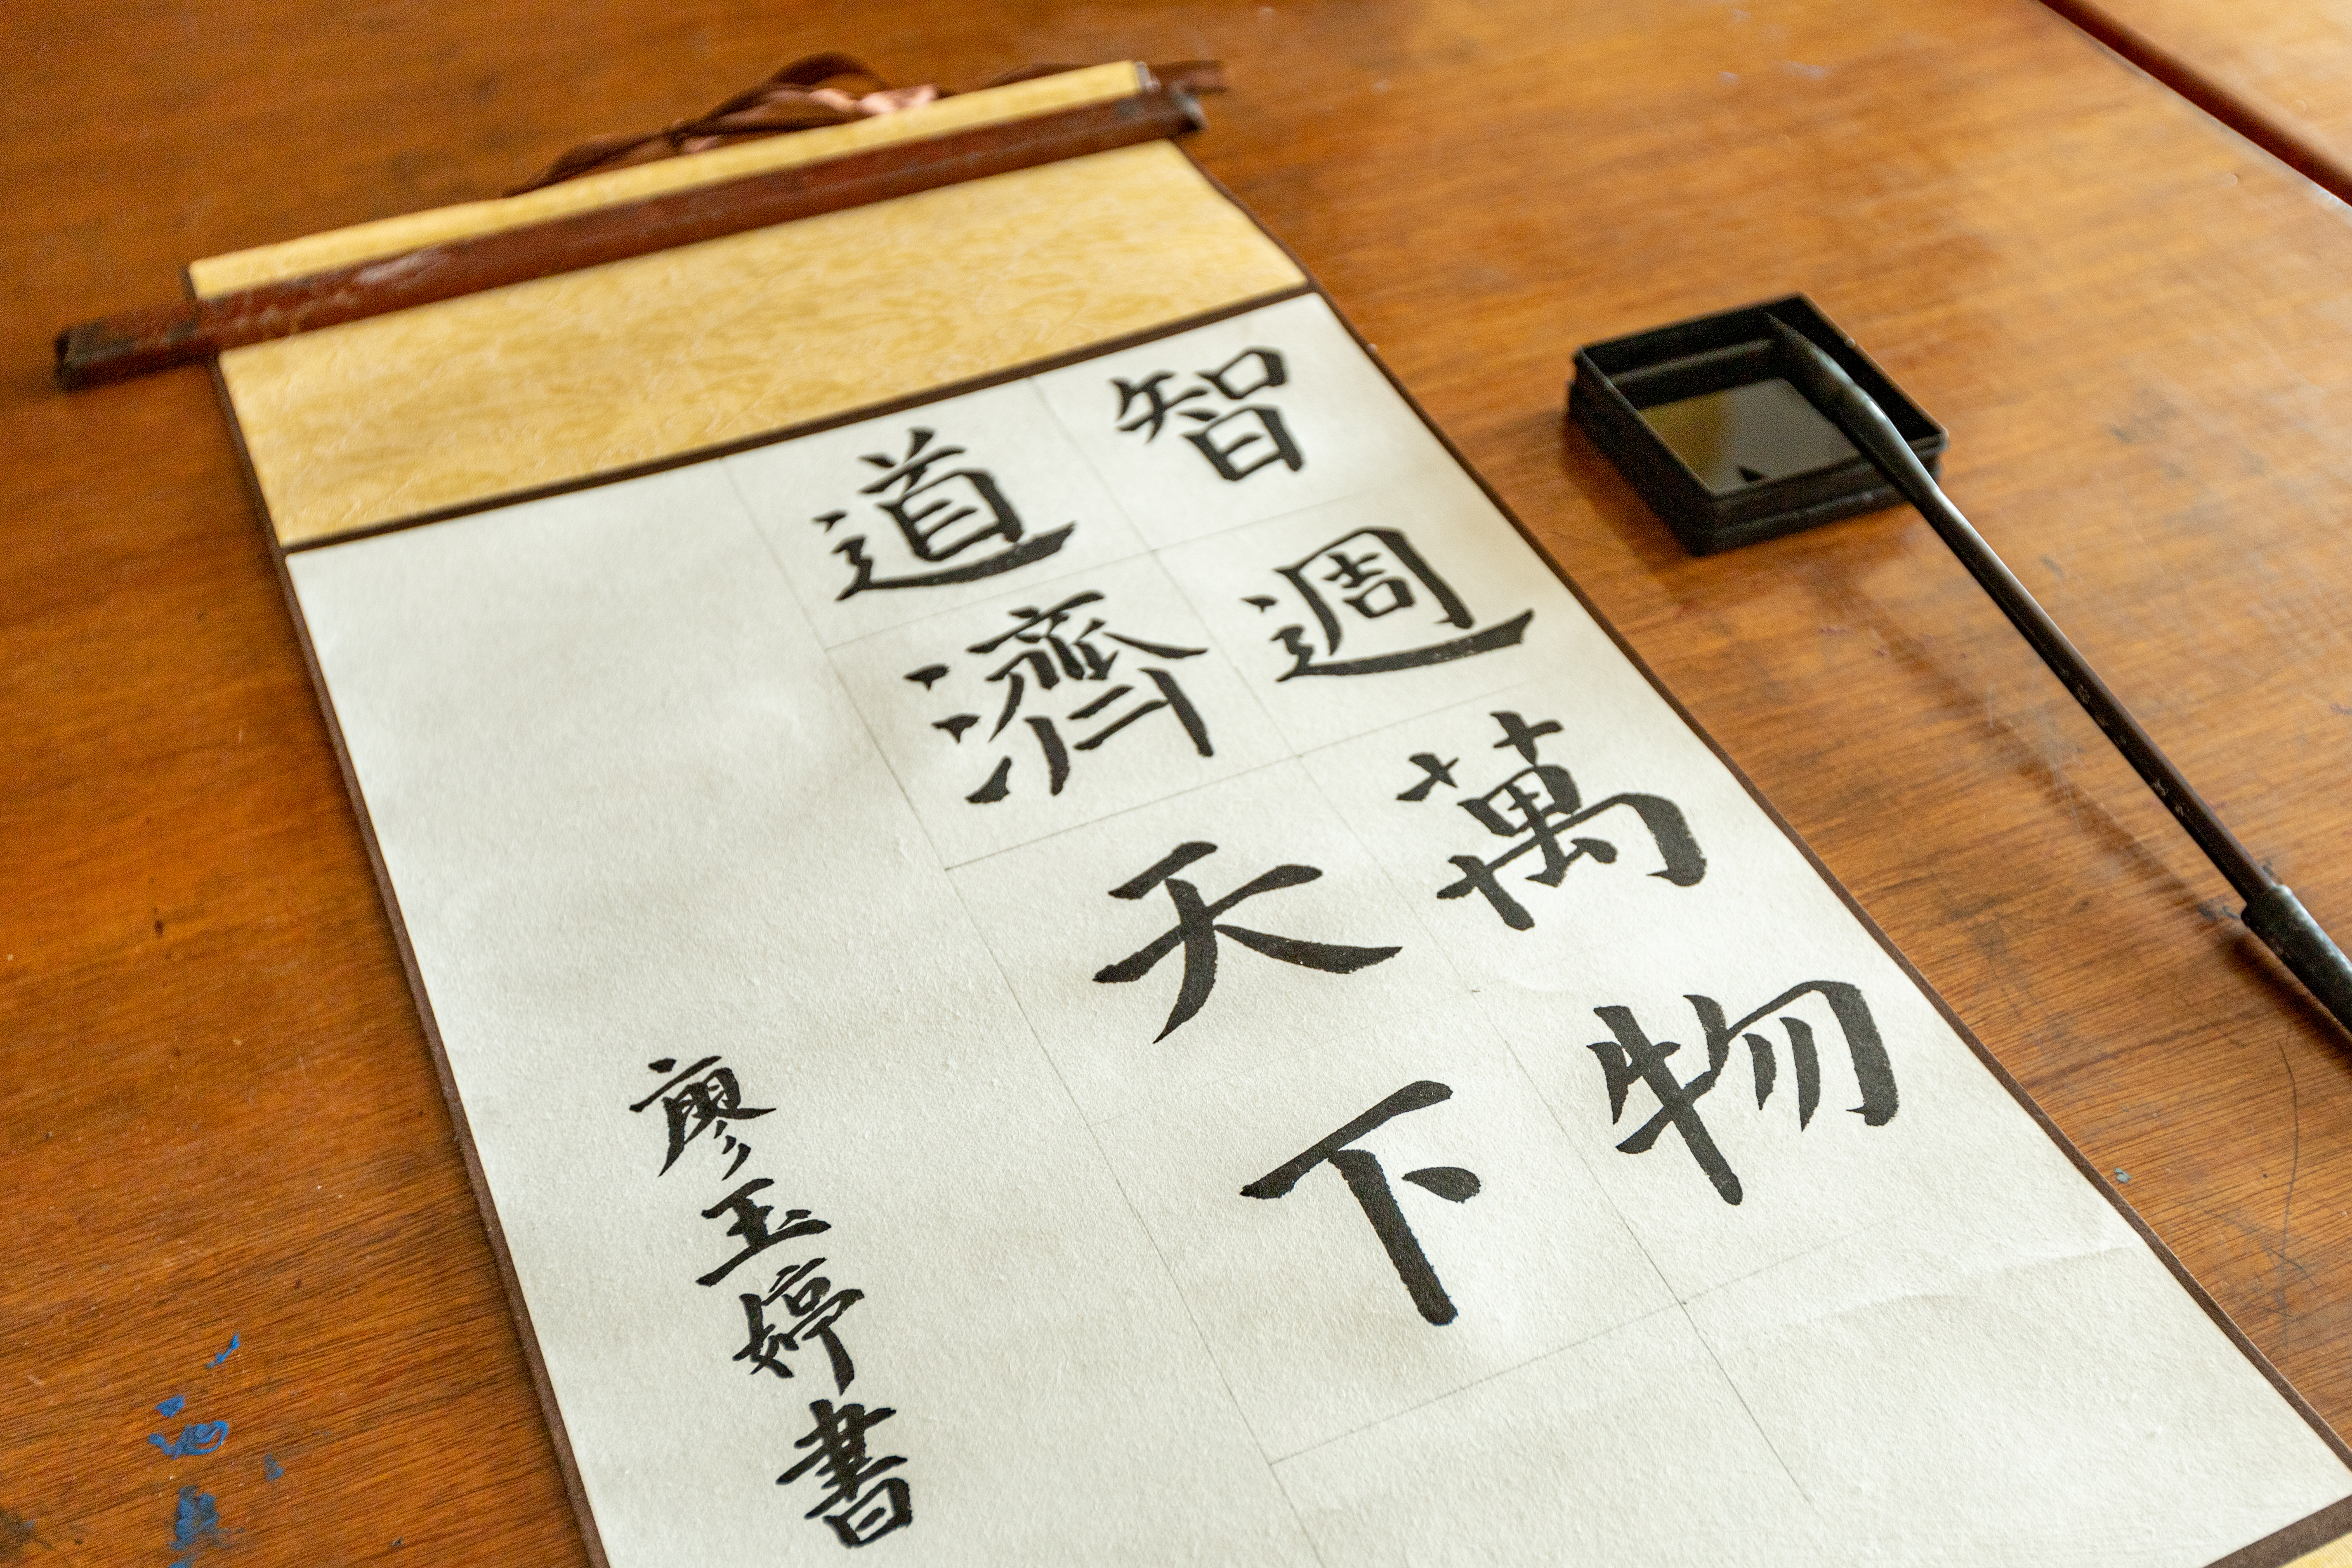 智週萬物
道濟天下
廖玉婷書